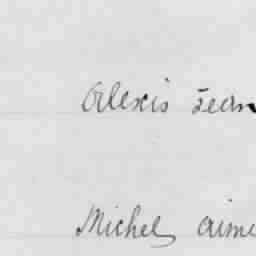 Alexis Jean
Michel aimé